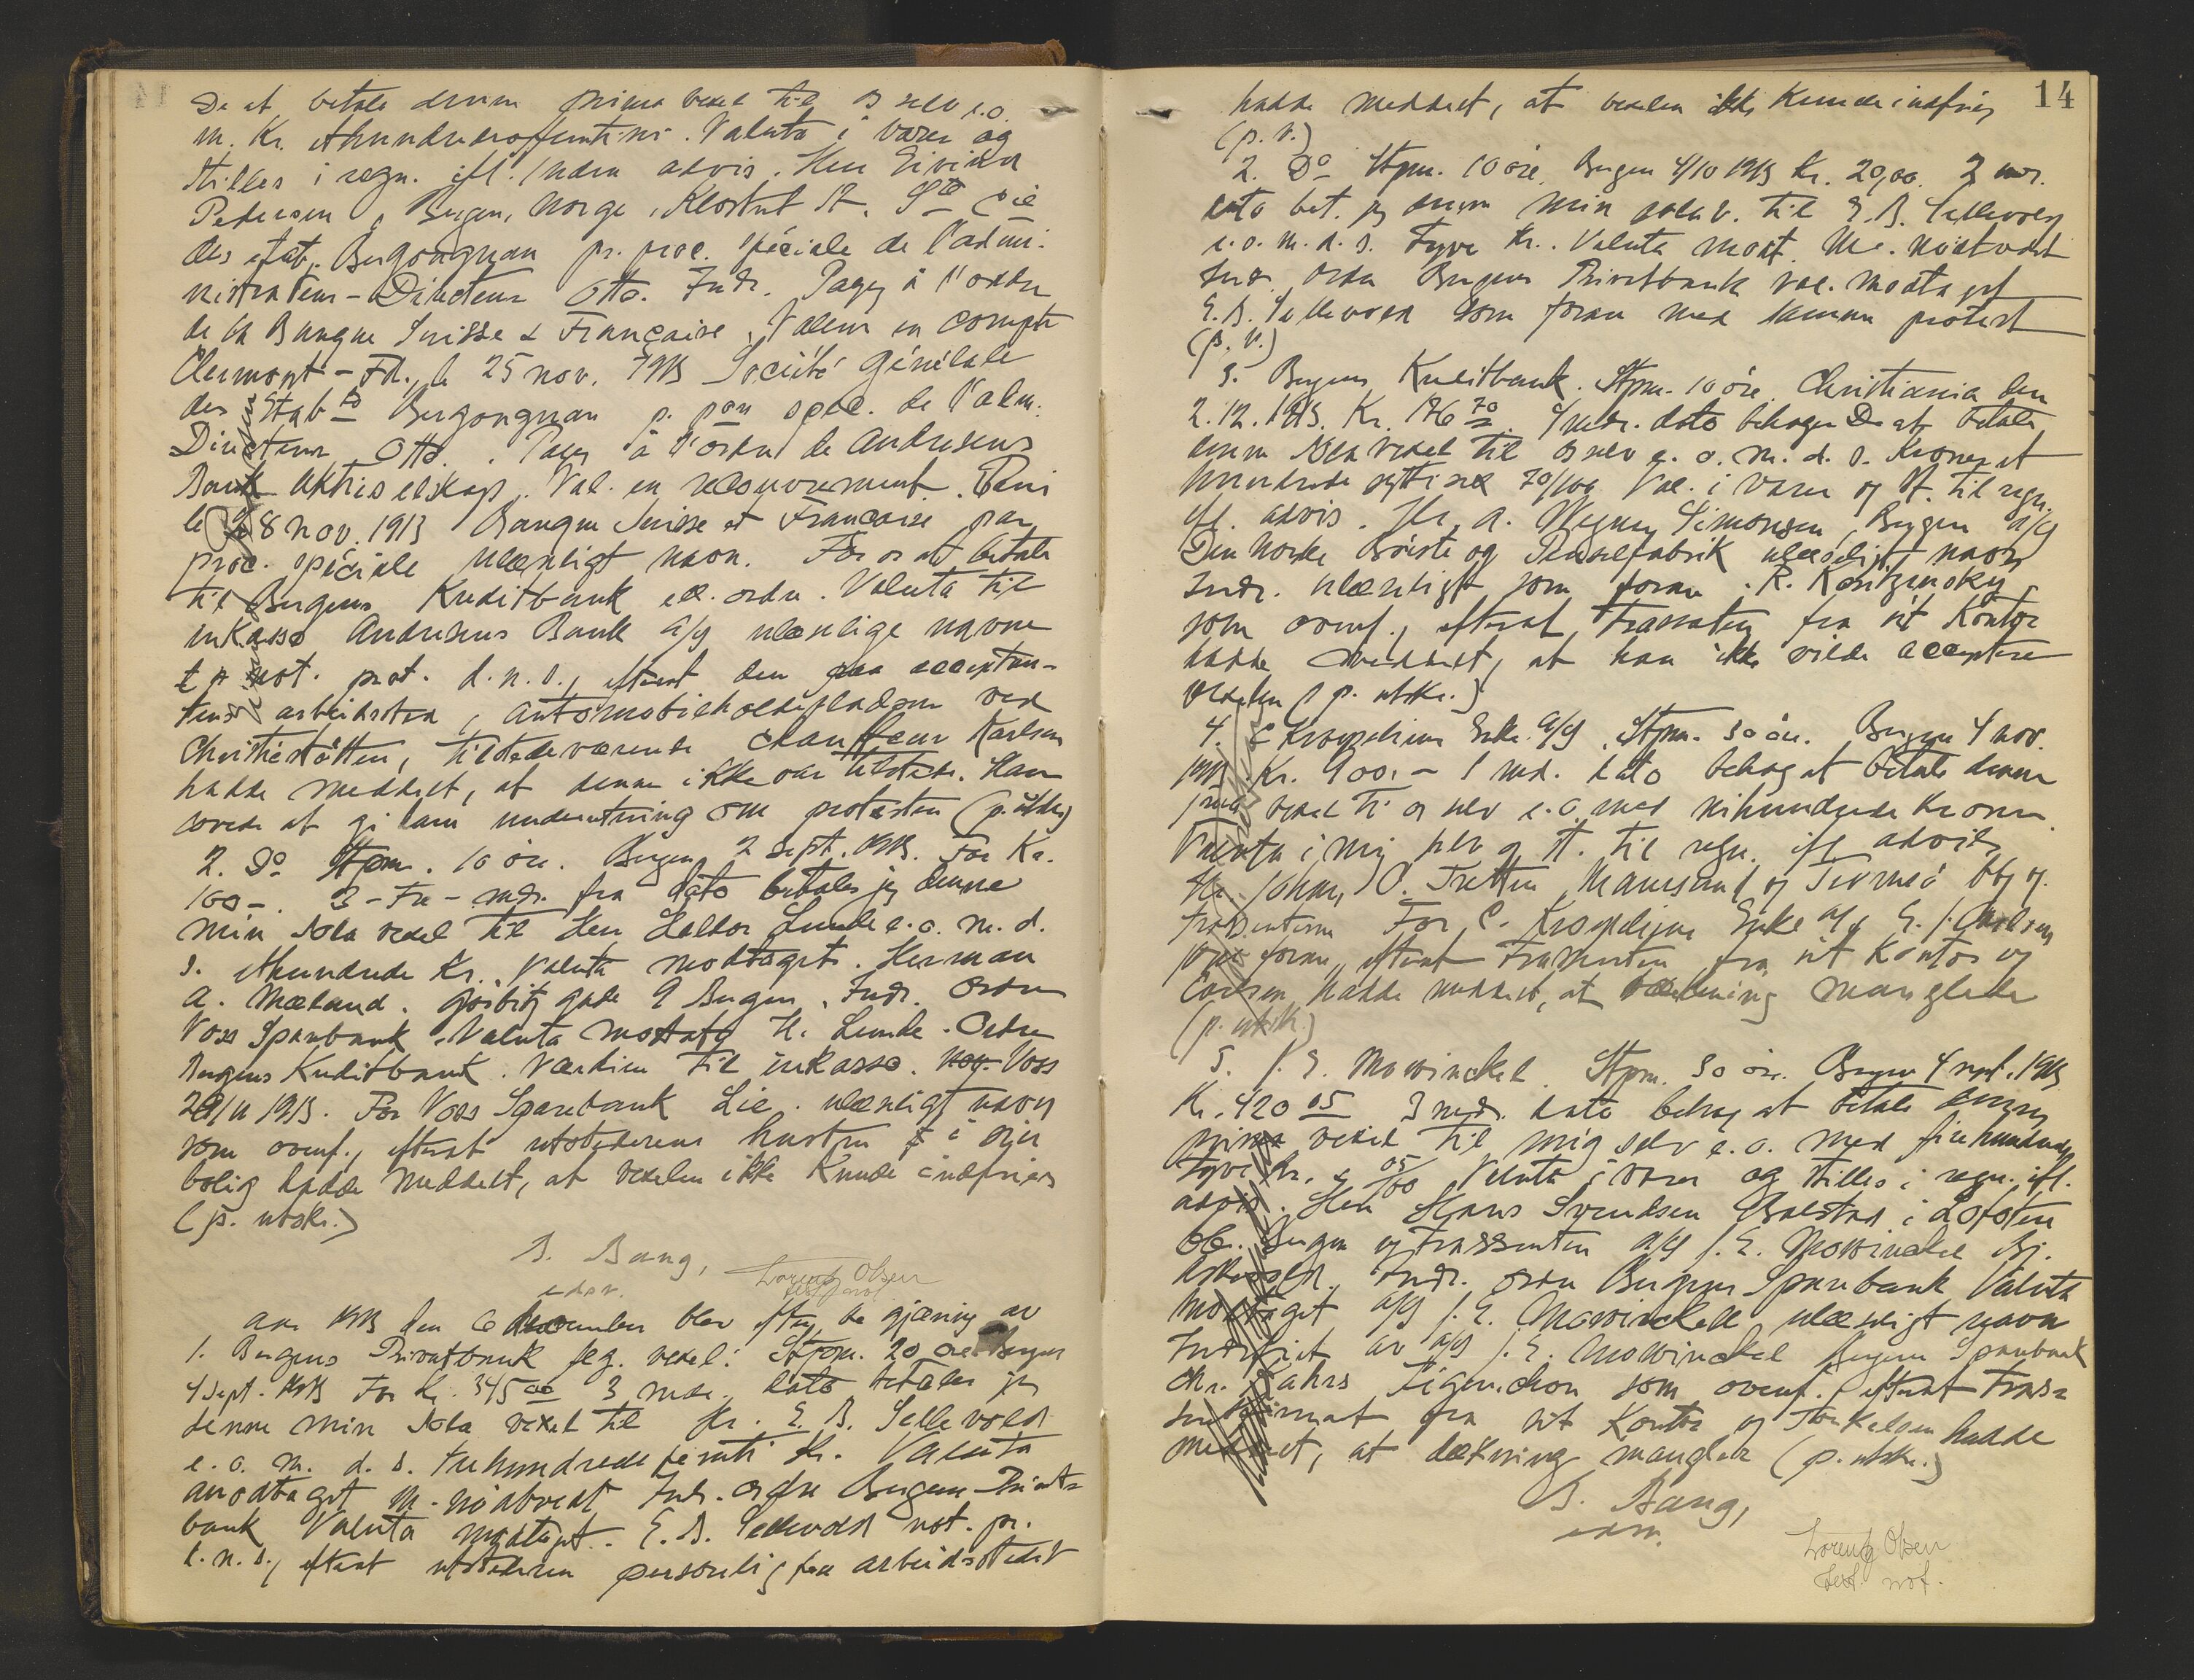 De at betale denne prima vexel til os selv e.o.
m. Kr. ethundredeogfemtini. Valuta i varer og
stilles i regn. ifl. uden advis. Herr Eivind
Pedersen, Bergen, Norge, Klostret St. Cie
des étab. Bergougnan pr. proc. spéciale de l'admi-
nistrateur-Directeur Otto. Indr. Payez à l'ordre
de la Banque Suisse & Française. Valeur en compte
Clermont-Fd., le 25 nov. 1913 Société générale
des Etabts Bergougnan p. pon spec. de l'adm.
Directeur Otto. Payez à l'ordre de Andresens
Bank Aktieselskap. Val. en recouvrement. Paris
le 28 nov. 1913 Banque Suisse et Francaise par
proc. spéciale ulæseligt navn. For os at betale
til Bergens Kreditbank el. ordre. Valuta til
inkasso Andresens Bank A/S ulæselige navne
not. prot. d.n.s., efterat den paa acceptan-
tens arbeidssted, automobilholdepladsen ved
Christiestøtten, tilstedeværende chauffeur Karlsen
hadde meddelt, at denne ikke var tilstede. Han
lovede at gi ham underretning om protesten (p. utskr.)
2. Do Stpm. 10 øre. Bergen 2 sept. 1913. For Kr.
100 -. 3 - Tre - mdr. fra dato betaler jeg denne
min sola vexel til Herr Halldor Lunde e.o. m. d.
s. ethundrede Kr. Valuta modtaget. Herman
A. Mæland. gade 9 Bergen. Indr. Ordre
Voss Sparebank. Valuta mottatt H. Lunde. Ordre
Bergens Kreditbank. Værdien til inkasso. Voss
28/11 1913. For Voss Sparebank Lie. ulæseligt navn
som ovenf., efterat utstederens hustru i sin
bolig hadde meddelt, at vexelen ikke kunde indfries
(p. utskr.)
B. Bang,
edsv.
Lorentz Olsen
test. not.
Aar 1913 den 6 december blev efter begjæring av
1. Bergens Privatbank flg. vexel: Stpm. 20 øre Bergen
4 Sept. 1913 For Kr. 345 00 3 mdr. dato betaler jeg
denne min sola vexel til Hr. E. B. Sellevold
e. o. m. d. s. trehundredefemti Kr. Valuta
modtaget M. Nødtvedt Indr. Ordre Bergens Privat-
bank Valuta modtaget. E. B. Sellevold not. pr.
d.n.s., efterat utstederen personlig paa arbeidsstedet
14
hadde meddelt, at vexelen ikke kunde indfries
(p. v.)
2. Do Stpm. 10 øre. Bergen 4/10 1913 Kr. 20,00. 2 mdr.
dato bet. jeg denne min solav. til E. B. Sellevold
e.o. m. d. s. Tyve Kr. Valuta modt. M. Nødtvedt
Indr. Ordre Bergens Privatbank val. modtaget
E. B. Sellevold som foran med samme protest
(p. v.)
3. Bergens Kreditbank. Stpm. 10 øre. Christiania den
2.12.1913. Kr. 176 70 dato behager De at betale
denne sola vexel til os selv e. o. m. d. s. Kroner et
hundrede syttisex 70/100 Val. i varer og st. til regn.
ifl. advis. Hr. A. Wegner Simonsen, Bergen A/S
Den norske Børste og Penselfabrik ulæseligt navn
Indr. ulæseligt som foran. R. Koritzinsky
som ovenf., efterat trassaten fra sit Kontor
hadde meddelt, at han ikke vilde acceptere
vexelen (p. utskr.)
4. C. Kroepeliens Enke A/S. Stpm. 30 øre. Bergen 4 nov.
1913. Kr. 900,- 1 md. dato behag at betale denne
prima vexel til os selv e.o. med nihundrede Kroner.
Valuta i mig selv og st. til regn. ifl. advis
Hr. Johan O. Tretten Maursund og
Trassenterne For C. Kroepeliens Enke A/S E.
som foran, efterat trassenten fra sit Kontor og
hadde meddelt, at dækning manglede
(p. utskr.)
5. J. E. Mowinckel. Stpm. 30 øre. Bergen 4 sept. 1913
Kr. 420 05 3 mdr. dato behag at betale denne
prima vexel til mig selv e.o. med firehundrede
tyve Kr. 05/100 Valuta i varer og stilles i regn. ifl.
advis. Herr Hans Svendsen Balstad i Lofoten
Bergen og Trassenten A/S J. E. Mowinckel
Indr. ordre Bergens Sparebank Valuta
modtaget A/S J. E. Mowinckel ulæseligt navn
Indfriet av A/S J. E. Mowinckel Bergens Sparebank
Chr. Jahns som ovenf., efterat tras-
fra sit Kontor og Torkelsen hadde
meddelt, at dækning mangler (p. utskr.)
B. Bang,
edsv.
Lorentz Olsen
test. not.